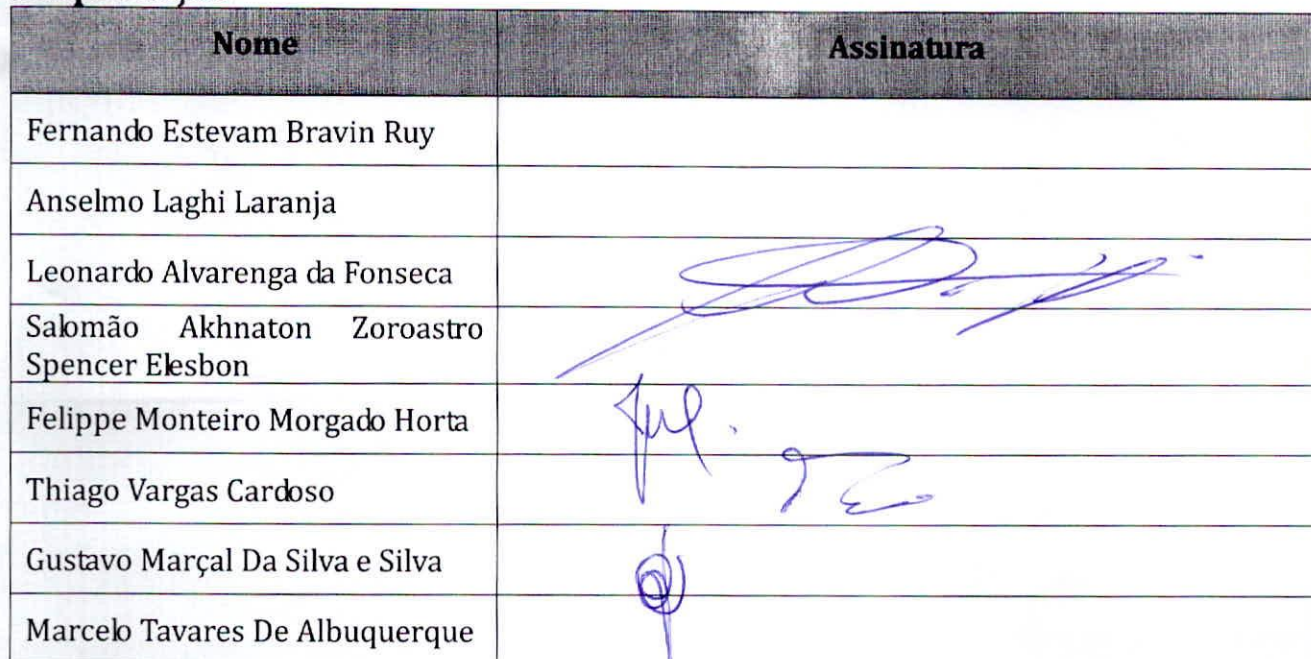 Nome Assinatura
Fernando Estevam Bravin Ruy
Anselmo Laghi Laranja
Leonardo Alvarenga da Fonseca
Salomão Akhnaton Zoroastro
Spencer Elesbon
Felippe Monteiro Morgado Horta
Thiago Vargas Cardoso
Gustavo Marçal Da Silva e Silva
Marcelo Tavares De Albuquerque